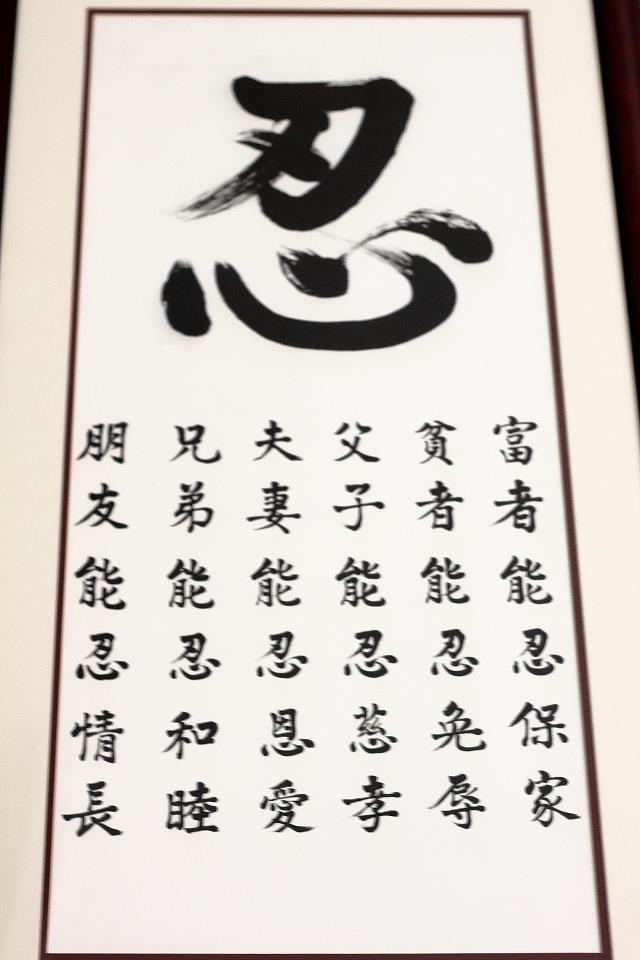 忍
富者能忍保家
貧者能忍免辱
父子能忍慈孝
夫妻能忍恩愛
兄弟能忍和睦
朋友能忍情長